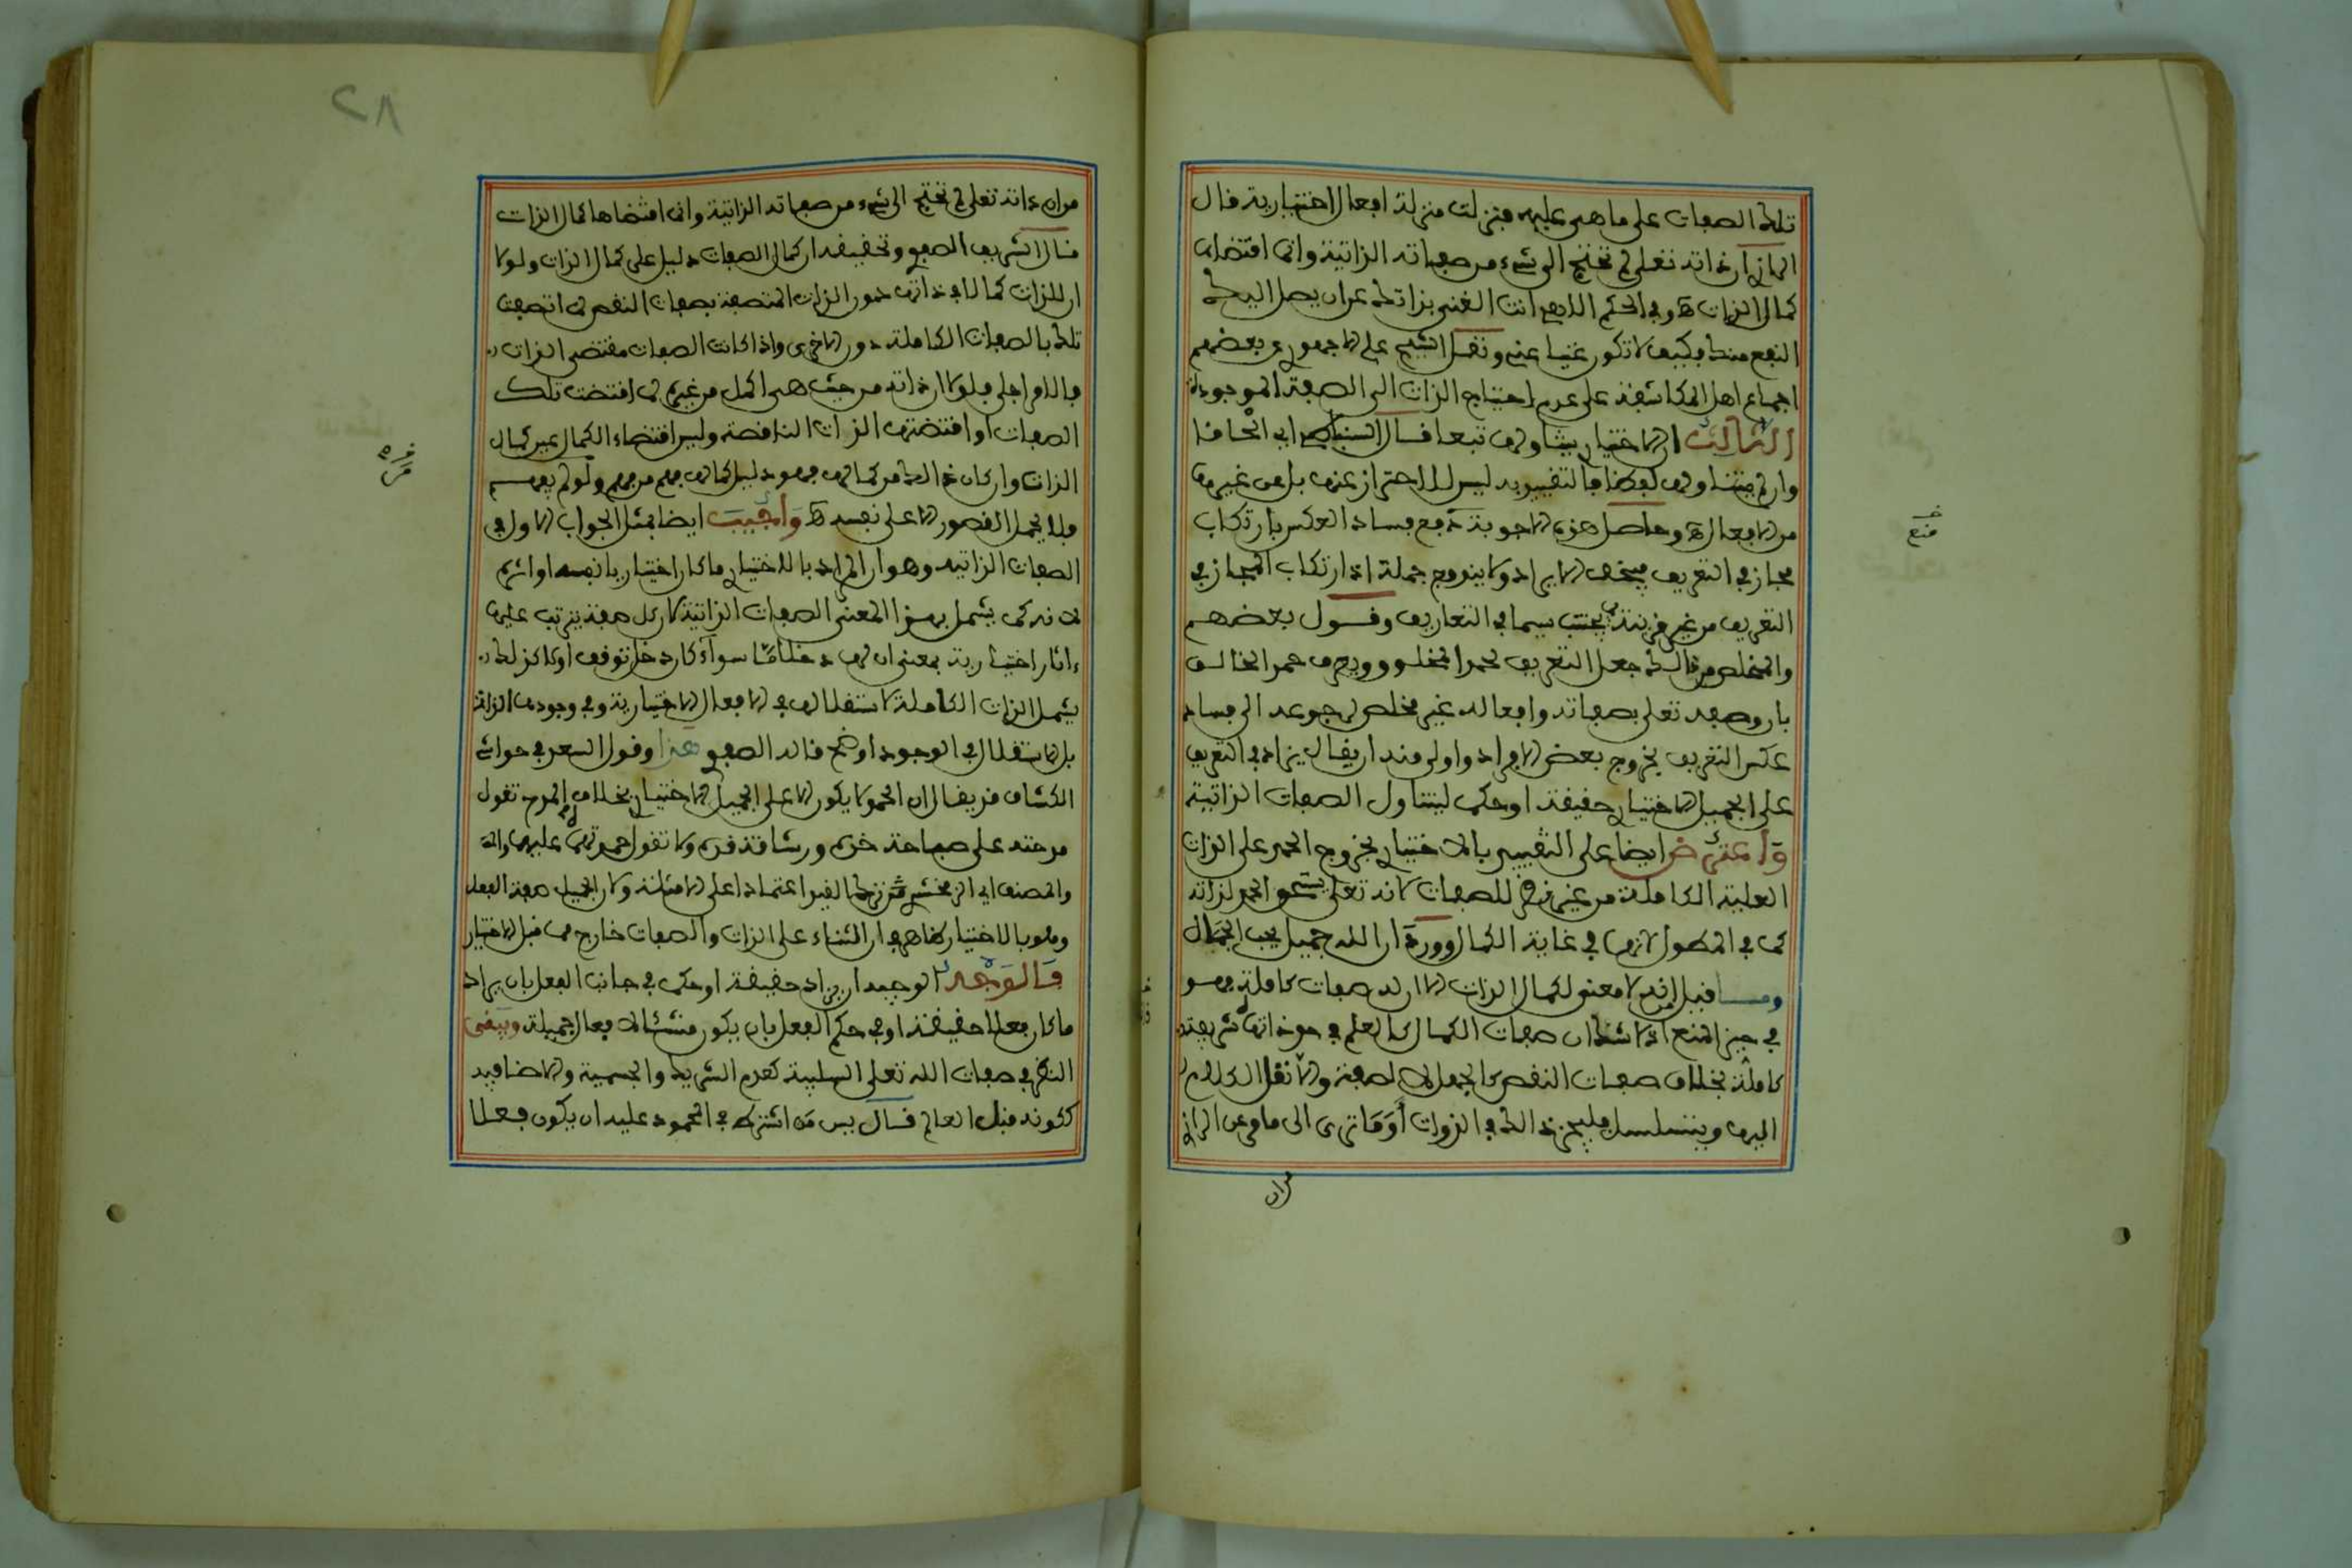 تلك الصفات على ما هي عليه فنزلت منزلة افعال اختيارية قال
الرازي ان ذاته تعلى لم تحتج الى شيء من صفاته الذاتية وانما اقتضاها
كمال الذات ه وفي الحكم الاهي انت الغني بذاتك عن ان يصل اليك
النفع منك فكيف لا تكون غنيا عني ونقل الشيخ على الاجهوري بعضهم
اجماع اهل المكاشفة على عدم احتياج الذات الى الصفة الموجودة
الثالث ان الاختيار يتناولها تبعا قال
وان لم يتناولها لفظا فالتقييد به ليس للاحتراز عنها بل عن غيرها
من الافعال ه وحاصل هذه الاجوبة دفع فساد العكس بارتكاب
مجاز في التعريف فيخف الايراد ولا يندفع جملة اذ ارتكاب المجاز في
التعريف من غير قرينة يجتنب سيما في التعاريف وقول بعضهم
والمخلص من ذلك جعل التعريف لحمد المخلوق ويعرف حمد الخالق
بان وصفه تعلى بصفاته وافعاله غير مخلص لرجوعه الى فساد
عكس التعريف بخروج بعض الافراد واولى منه ان يقال يزاد في التعريف
على الجميل الاختياري حقيقة او حكما ليتناول الصفات الذاتية
واعترض ايضا على التقييد بالاختياري بخروج الحمد على الذات
العلية الكاملة من غير نظر للصفات لانه تعلى يستحق الحمد لذاته
كما في المطول لانها في غاية الكمال وورد ان الله جميل يحب الجمال
وما قيل انه لا معنى لكمال الذات الا ان له صفات كاملة فهو
في حيز المنع اذ لا شك ان صفات الكمال كالعلم في حد ذاتها شريفة
كاملة بخلاف صفات النقص كالجهل لا لصفة والا نقل الكلام
اليها ويتسلسل فليجز ذلك في الذوات أو ما ترى الى ما مر عن الرازي
من ان
منع
من ان ذاته تعلى لم تحتج الى شيء من صفاته الذاتية وانما اقتضاها كمال الذات
قال الشريف الصفوي وتحقيقه ان كمال الصفات دليل على كمال الذات ولولا
ان للذات كمالا في ذاتها دون الذات المتصفة بصفات النقص لما اتصفت
تلك بالصفات الكاملة دون الاخرى واذا كانت الصفات مقتضى الذات
فالامر اجلى فلولا ان ذاته من حيث هي اكمل من غيره لما اقتضت تلك
الصفات او اقتضتها الذات الناقصة وليس اقتضاء الكمال عين كمال
الذات وان كان ذلك من كمالها فهو دليل كمالها فهم من فهم ولو لم يفهم
فلا يحمل القصور الا على نفسه ه وأجيب ايضا بمثل الجواب الاول في
الصفات الذاتية وهو ان المراد بالاختياري ما كان اختياريا بنفسه او اثره
كما نه كما يشمل بهذا المعنى الصفات الذاتية لان كل صفة يترتب عليها
ءاثار اختيارية بمعنى ان لها دخلا ما سواء كان دخل توقف او لا كذلك
يشمل الذات الكاملة لاستقلالها في الافعال الاختيارية وفي وجودها الذات
بل الاستقلال في الوجود اوضح قاله الصفوي هذا وقول السعد في حواشي
الكشاف قد يقال ان الحمد لا يكون الا على الجميل الاختياري بخلاف المدح تقول
مدحته على صباحة خده ورشاقة قده ولا تقول حمدته عليهما والله
والمصنف اي الزمخشري ترك القيد اعتمادا على الامثلة ولان الجميل صفة الفعل
وهو بالاختيار ظاهر في ان الثناء على الذات والصفات خارج من قيد الاختيار
فالوجه الوجيه ان يزاد حقيقة او حكما في جانب الفعل بان يراد
ما كان فعلا حقيقة او في حكم الفعل بان يكون منشئا لافعال جميلة ويبقى
النظر في صفات الله تعلى السلبية كعدم الشريك والجسمية والاضافية
ككونه قبل العالم قال يس من اشترط في المحمود عليه ان يكون فعلا